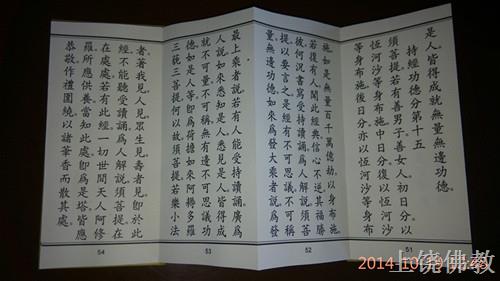 是人。皆得成就無量無邊功德。
持經功德分第十五
須菩提。若有善男子善女人。初日分。以
恆河沙等身布施。中日分。復以恆河沙
等身布施。後日分。亦以恆河沙等身布
51
施。如是無量百千萬億劫。以身布施。
若復有人。聞此經典。信心不逆。其福勝
彼。何況書寫受持讀誦。為人解說。須菩
提。以要言之。是經有不可思議。不可稱
量。無邊功德。如來為發大乘者說。為發
52
最上乘者說。若有人能受持讀誦。廣為
人說。如來悉知是人。悉見是人。皆得成
就不可量。不可稱。無有邊。不可思議功
德。如是人等。即為荷擔如來阿耨多羅
三藐三菩提。何以故。須菩提。若樂小法
53
者。著我見人見眾生見壽者見。即於此
經不能聽受讀誦。為人解說。須菩提。在
在處處。若有此經。一切世間天人阿修
羅。所應供養。當知此處。即為是塔。皆應
恭敬。作禮圍繞。以諸華香而散其處。
54
2014-10
上饶佛教